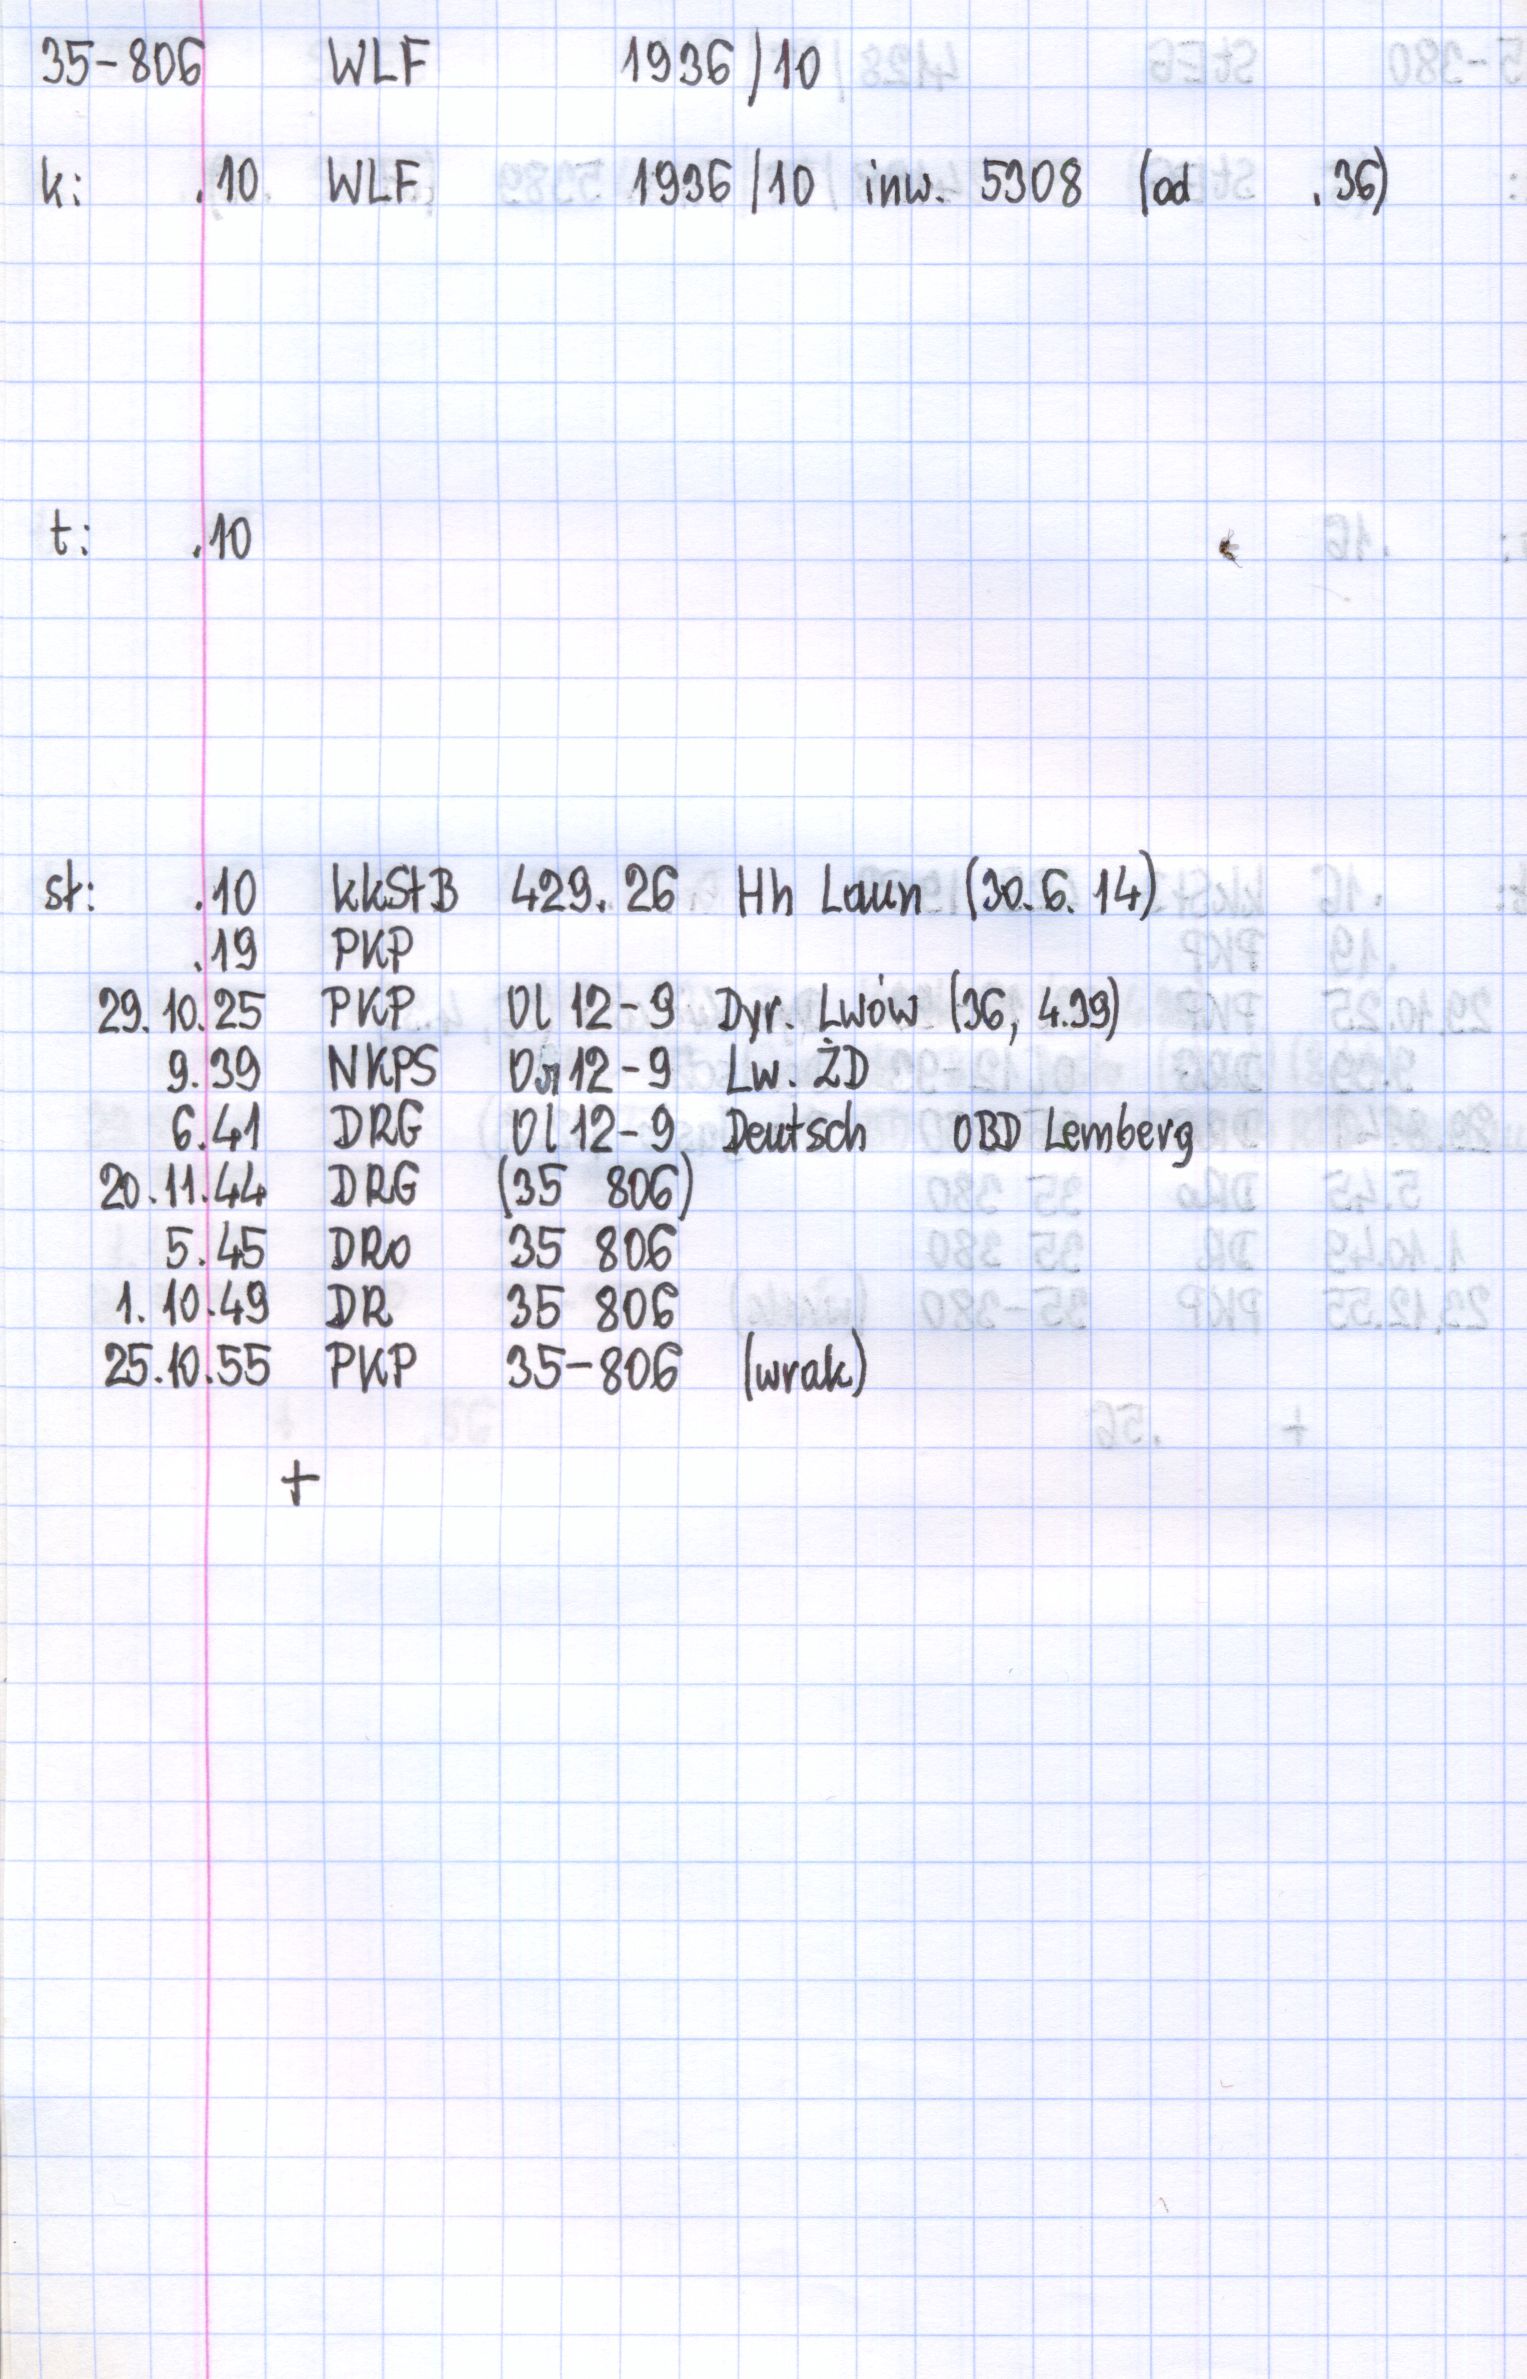 35-806 WLF 1936/10
k: .10 WLF 1936/10 inw. 5308 (od .36)
t: .10
st: .10 kkStB 429.26 Hh Laun (30.6.14)
.19 PKP
29.10.25 PKP Ol 12-9 Dyr. Lwów (36, 4.39)
9.39 NKPS Ол 12-9 Lw. ŻD
6.41 DRG Ol 12-9 Deutsch OBD Lemberg
20.11.44 DRG (35 806)
5.45 DRo 35 806
1.10.49 DR 35 806
25.10.55 PKP 35-806 (wrak)
+